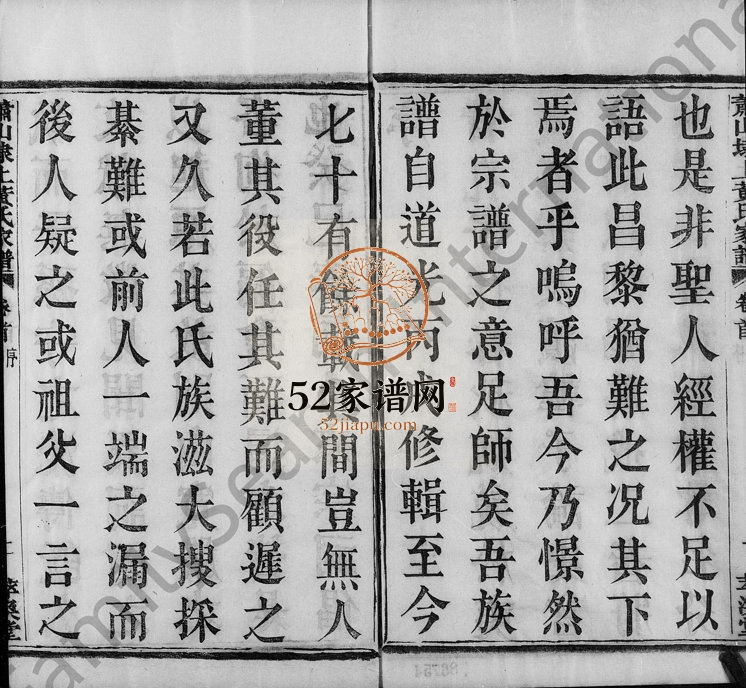 也是非聖人經權不足以
語此昌黎猶難之况其下
焉者乎嗚呼吾今乃憬然
於宗譜之意足師矣吾族
譜自道光丙戌修輯至今
七十有餘載其間豈無人
董其役任其難而顧遲之
又久若此氏族滋大搜採
綦難或前人一端之漏而
後人疑之或祖父一言之
蕭山埭上黃氏家譜
卷首
序
萃渙堂
蕭山埭上黃氏家譜
卷首
序
52家谱网
52jiapu.com
familysearch international